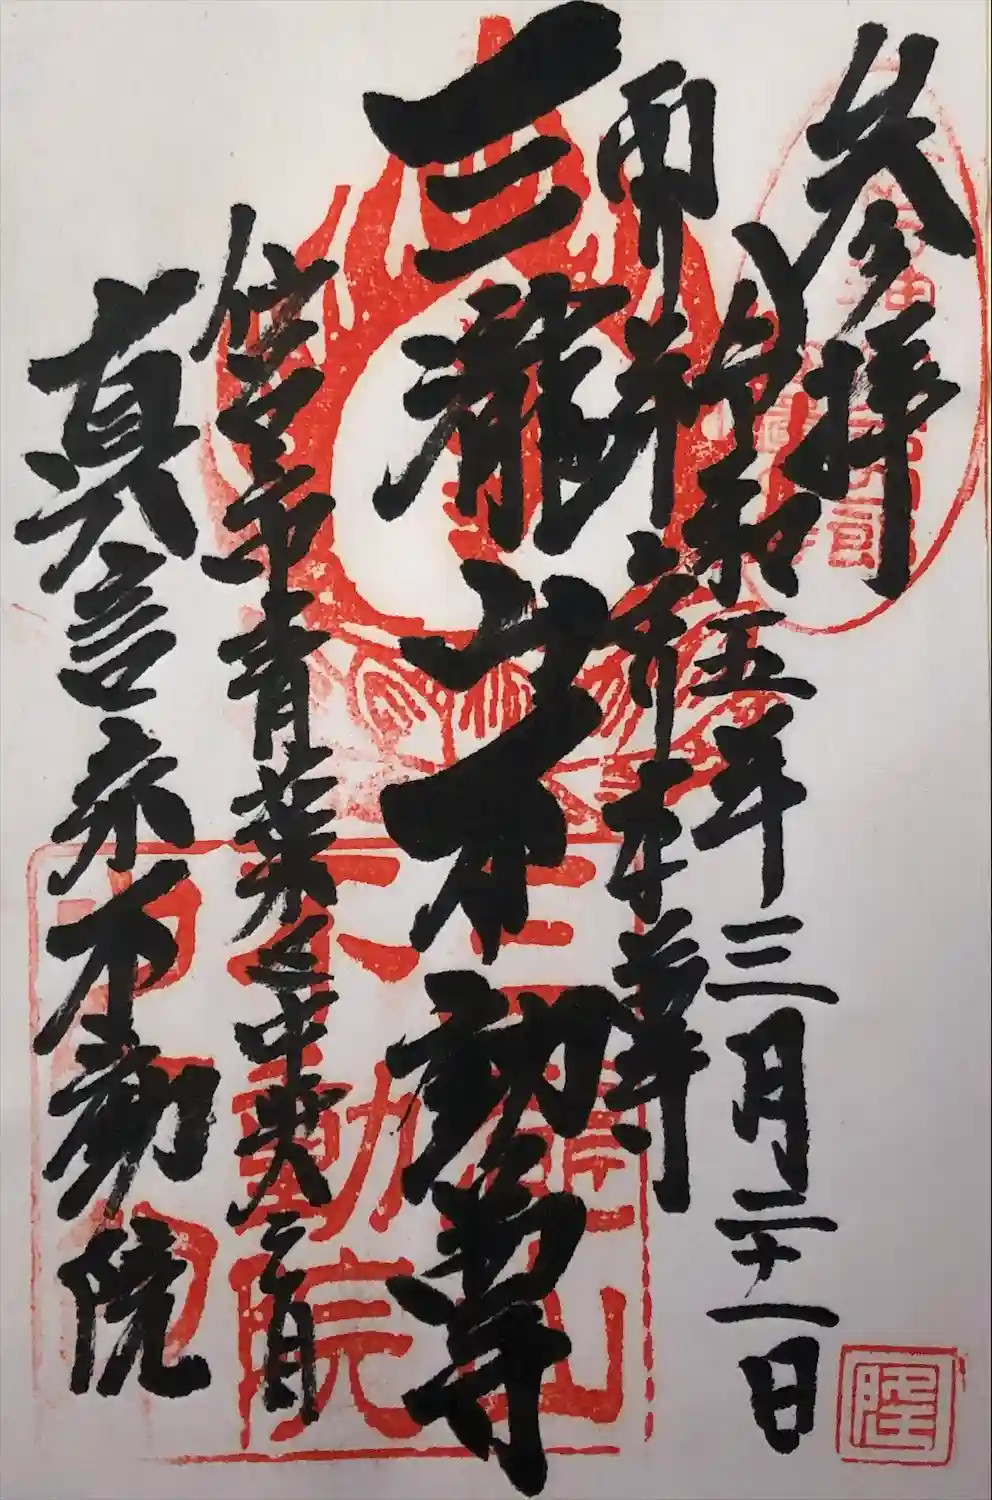 参拝
令和五年三月二十一日
三瀧山不動尊
仙台市青葉区中央二丁目
真言宗不動院
三瀧山
不動院
隆